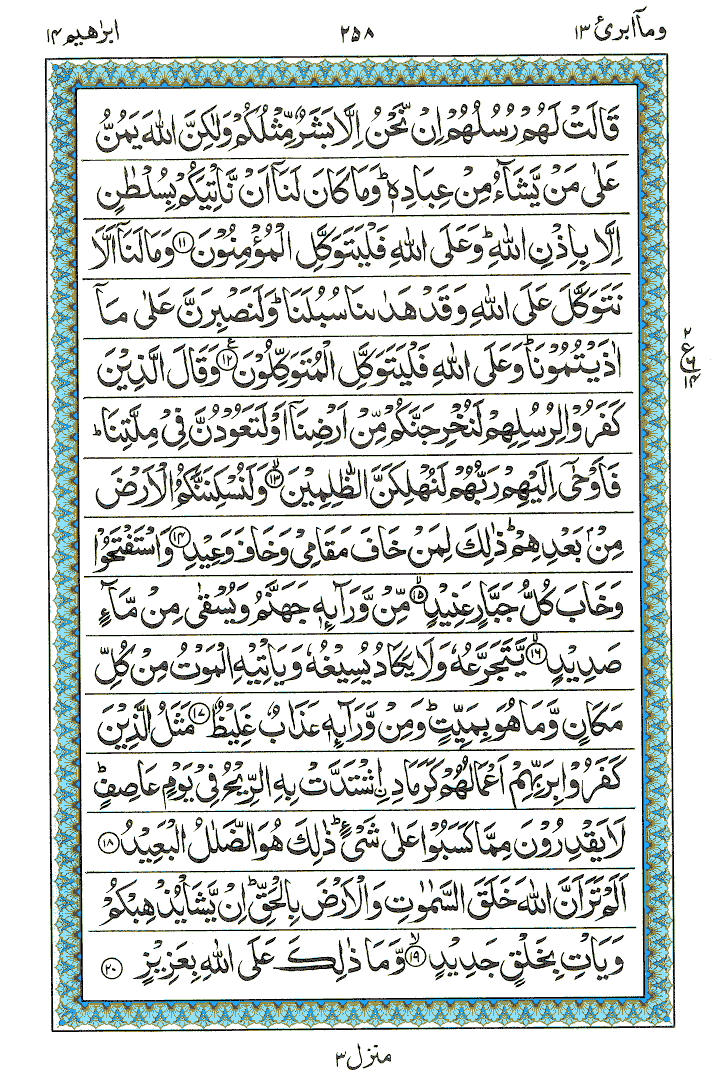 ومآ ابرئ ١٣
٢٥٨
ابرٰهيم ١٤
قَالَتْ لَهُمْ رُسُلُهُمْ اِنْ نَّحْنُ اِلَّا بَشَرٌ مِّثْلُكُمْ وَلٰكِنَّ اللّٰهَ يَمُنُّ
عَلٰى مَنْ يَّشَآءُ مِنْ عِبَادِهٖ ؕ وَمَا كَانَ لَنَاۤ اَنْ نَّاْتِيَكُمْ بِسُلْطٰنٍ
اِلَّا بِاِذْنِ اللّٰهِ ؕ وَعَلَى اللّٰهِ فَلْيَتَوَكَّلِ الْمُؤْمِنُوْنَ ۝١١ وَمَا لَنَاۤ اَلَّا
نَتَوَكَّلَ عَلَى اللّٰهِ وَقَدْ هَدٰىنَا سُبُلَنَا ؕ وَلَنَصْبِرَنَّ عَلٰى مَاۤ
اٰذَيْتُمُوْنَا ؕ وَعَلَى اللّٰهِ فَلْيَتَوَكَّلِ الْمُتَوَكِّلُوْنَ ۝١٢ وَقَالَ الَّذِيْنَ
٢
ع
٦
١٤
كَفَرُوْا لِرُسُلِهِمْ لَنُخْرِجَنَّكُمْ مِّنْ اَرْضِنَاۤ اَوْ لَتَعُوْدُنَّ فِيْ مِلَّتِنَا ؕ
فَاَوْحٰۤى اِلَيْهِمْ رَبُّهُمْ لَنُهْلِكَنَّ الظّٰلِمِيْنَ ۝١٣ وَلَنُسْكِنَنَّكُمُ الْاَرْضَ
مِنْۢ بَعْدِهِمْ ؕ ذٰلِكَ لِمَنْ خَافَ مَقَامِيْ وَخَافَ وَعِيْدِ ۝١٤ وَاسْتَفْتَحُوْا
وَخَابَ كُلُّ جَبَّارٍ عَنِيْدٍ ۝١٥ مِّنْ وَّرَآئِهٖ جَهَنَّمُ وَيُسْقٰى مِنْ مَّآءٍ
صَدِيْدٍ ۝١٦ يَّتَجَرَّعُهٗ وَلَا يَكَادُ يُسِيْغُهٗ وَيَاْتِيْهِ الْمَوْتُ مِنْ كُلِّ
مَكَانٍ وَّمَا هُوَ بِمَيِّتٍ ؕ وَمِنْ وَّرَآئِهٖ عَذَابٌ غَلِيْظٌ ۝١٧ مَثَلُ الَّذِيْنَ
كَفَرُوْا بِرَبِّهِمْ اَعْمَالُهُمْ كَرَمَادِ ۨاشْتَدَّتْ بِهِ الرِّيْحُ فِيْ يَوْمٍ عَاصِفٍ ؕ
لَا يَقْدِرُوْنَ مِمَّا كَسَبُوْا عَلٰى شَيْءٍ ؕ ذٰلِكَ هُوَ الضَّلٰلُ الْبَعِيْدُ ۝١٨
اَلَمْ تَرَ اَنَّ اللّٰهَ خَلَقَ السَّمٰوٰتِ وَالْاَرْضَ بِالْحَقِّ ؕ اِنْ يَّشَاْ يُذْهِبْكُمْ
وَيَاْتِ بِخَلْقٍ جَدِيْدٍ ۝١٩ وَّمَا ذٰلِكَ عَلَى اللّٰهِ بِعَزِيْزٍ ۝٢٠
منزل ٣